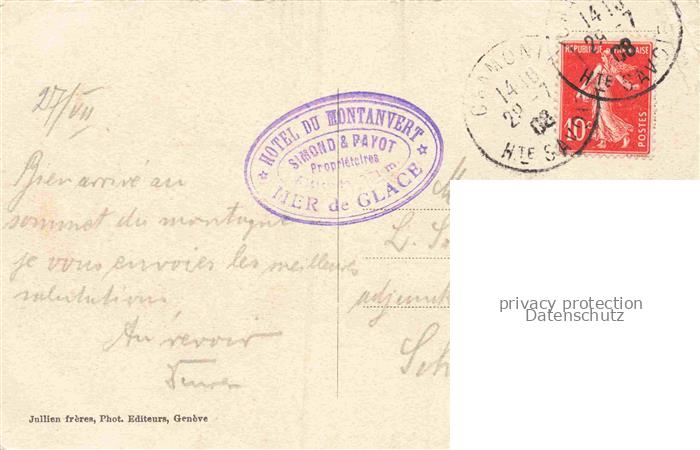 27/VII
Bien arrivé au
sommet du montagne
je vous envoies les meilleurs
salutations
Au revoir
HOTEL DU MONTANVERT
SIMOND & PAYOT
Propriétaires
MER de GLACE
CHAMONIX
14 10
29 - 7
08
HTE SAVOIE
14 10
29 - 7
08
HTE SAVOIE
REPUBLIQUE FRANÇAISE
10c
POSTES
M
L. S
adjunkt
Sch
privacy protection
Datenschutz
Jullien frères, Phot. Editeurs, Genève